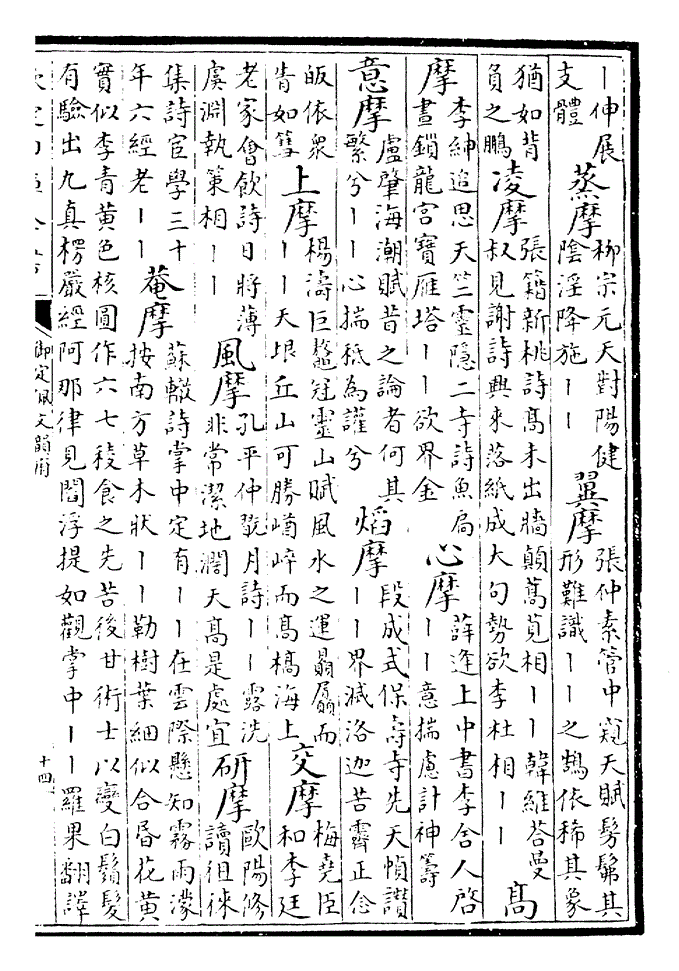 ｜伸展支體 蒸摩 柳宗元天對陽健陰淫降施｜｜ 翼摩 張仲素管中窺天賦髣髴其形難識｜｜之鵠依稀其象
猶如背負之鵬 凌摩 張籍新桃詩髙未出牆顛蔦莧相｜｜韓維荅曼叔見謝詩興來落紙成大句勢欲李杜相｜｜ 髙
摩 李紳追思天竺靈隱二寺詩魚扃晝鎖龍宫寶雁塔｜｜欲界金 心摩 薛逢上中書李舍人啓｜｜意揣慮計神籌
意摩 盧肇海潮賦昔之論者何其繁兮｜｜心揣秪為讙兮 熖摩 段成式保壽寺先天幀讃｜｜界滅洛迦苦霽正念
皈依衆眚如篲 上摩 楊濤巨鼇冠靈山賦風水之運贔屭而｜｜天垠丘山可勝崷崪而髙槗海上 交摩 梅堯臣和李廷
老家會飲詩日將薄虞淵執策相｜｜ 風摩 孔平仲翫月詩｜｜露洗非常潔地濶天髙是處宜 研摩 歐陽修讀徂徠
集詩宦學三十年六經老｜｜ 菴摩 蘇轍詩掌中定有｜｜在雲際懸知霧雨濛按南方草木狀｜｜勒樹葉細似合昏花黄
實似李青黄色核圓作六七稜食之先苦後甘術士以變白鬚髮有驗出九真楞嚴經阿那律見閻浮提如觀掌中｜｜羅果翻譯
御定佩文韻府 十四